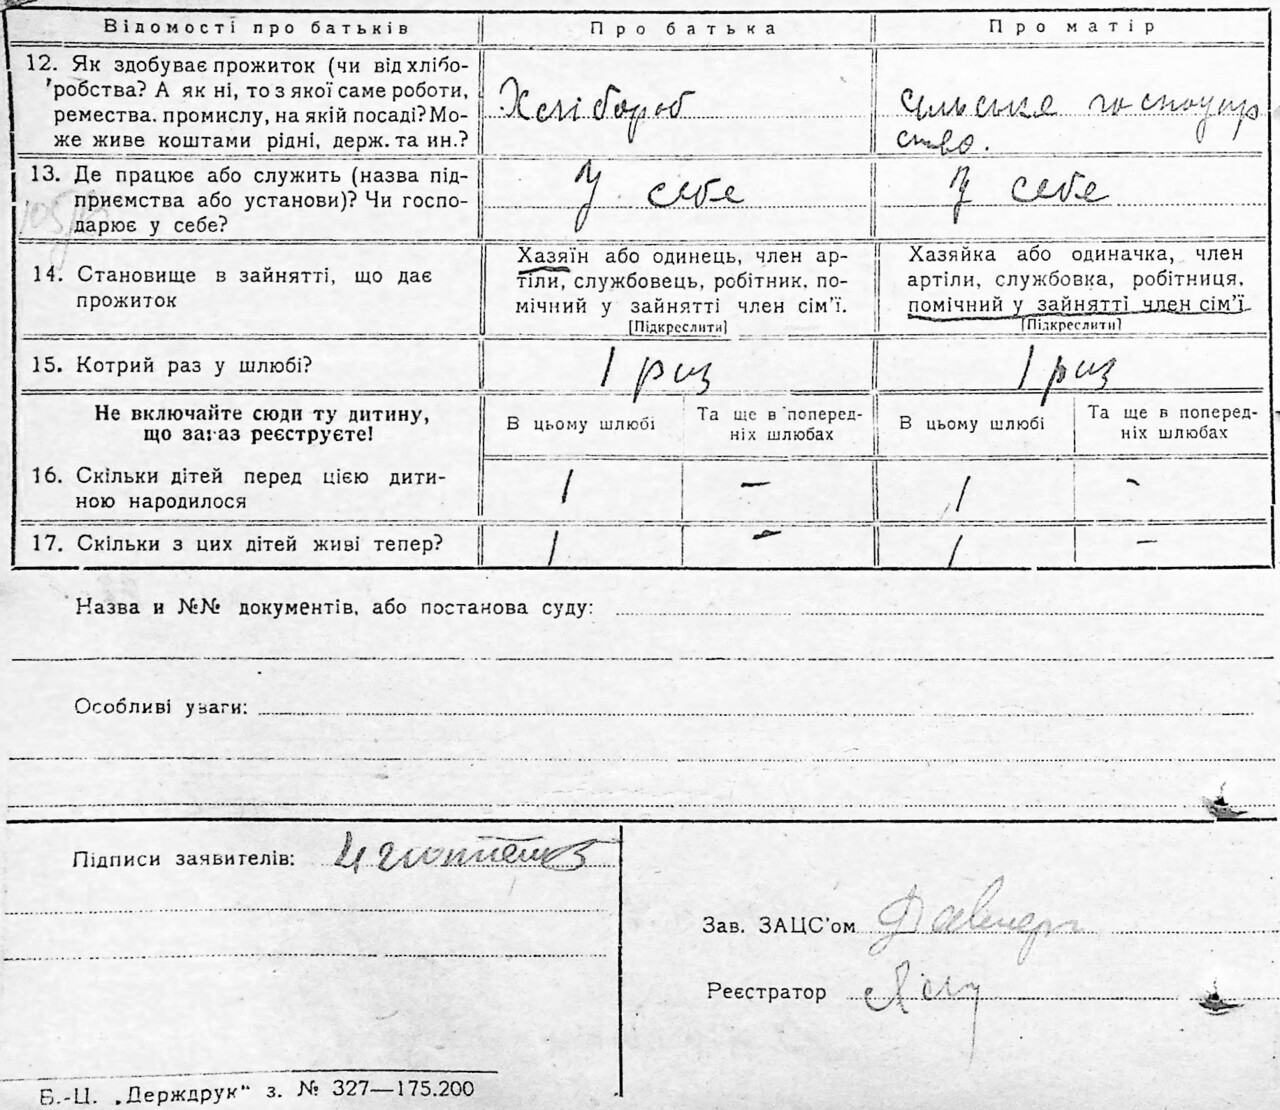 Відомості про батьків Про батька Про матір
12. Як здобуває прожиток (чи від хлібо-
робства? А як ні, то з якої саме роботи,
ремества. промислу, на якій посаді? Мо-
же живе коштами рідні, держ. та ин.?
Хлібороб
сильське господар
ство.
13. Де працює або служить (назва під-
приємства або установи)? Чи госпо-
дарює у себе?
У себе
У себе
14. Становище в зайнятті, що дає
прожиток
Хазяїн або одинець, член ар-
тіли, службовець, робітник, по-
мічний у зайнятті член сім’ї.
[Підкреслити]
Хазяйка або одиначка, член
артіли, службовка, робітниця,
помічний у зайнятті член сім’ї
[Підкреслити]
15. Котрий раз у шлюбі?
1 раз
1 раз
Не включайте сюди ту дитину,
що зараз реєструєте!
В цьому шлюбі
Та ще в поперед-
ніх шлюбах
В цьому шлюбі
Та ще в поперед-
ніх шлюбах
16. Скільки дітей перед цією дити-
ною народилося
1 - 1 -
17. Скільки з цих дітей живі тепер?
1 - 1 -
Назва и №№ документів, або постанова суду:
Особливі уваги:
Підписи заявителів:
Зав. ЗАЦС’ом
Реєстратор
Б.-Ц. „Держдрук“ з. № 327—175.200